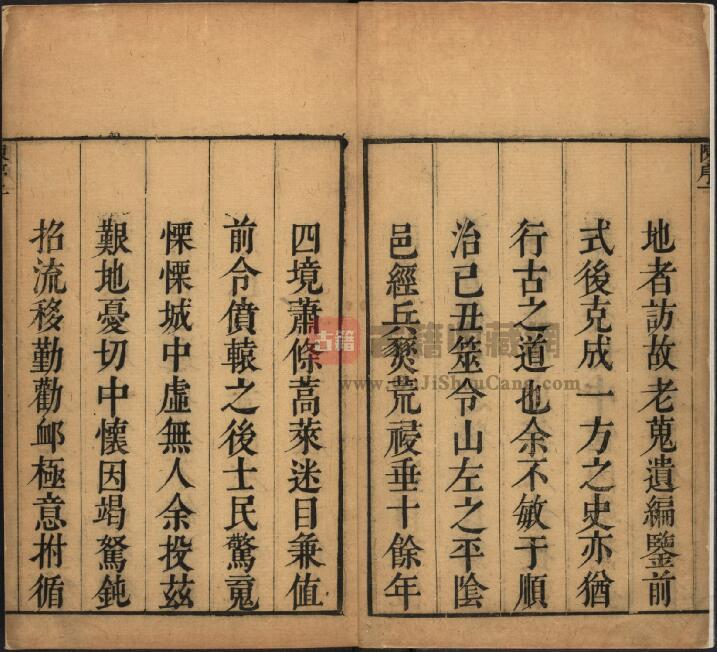 地者訪故老蒐遺編鑒前
式後克成一方之史亦猶
行古之道也余不敏于順
治己丑筮令山左之平陰
邑經兵燹荒祲垂十餘年
四境蕭條蒿萊迷目兼值
前令僨轅之後士民驚竄
慄慄城中虛無人余投茲
艱地憂切中懷因竭駑鈍
招流移勤勸衈極意拊循
陳序
古籍
www.GuJiShouCang.com